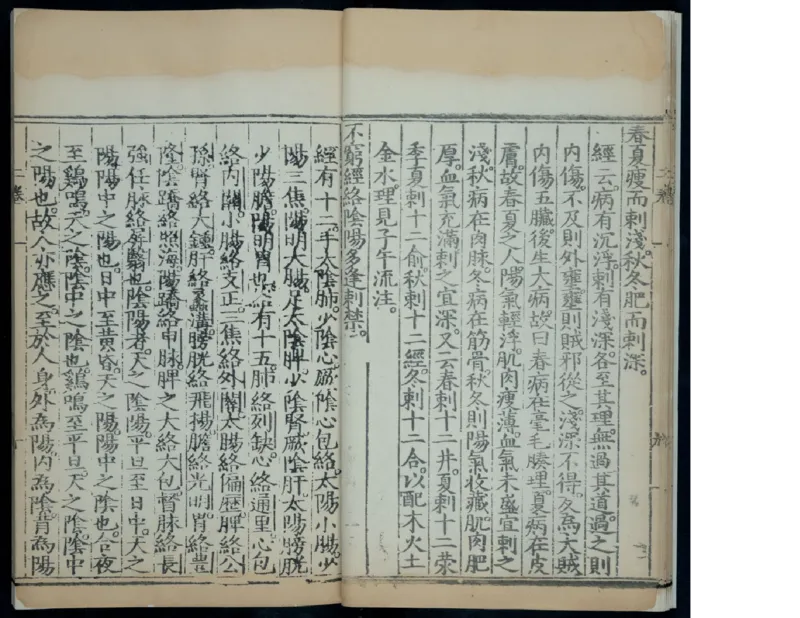 春夏瘦而刺淺。秋冬肥而刺深。
經云。病有沉浮。刺有淺深。各至其理。無過其道。過之則
內傷。不及則外壅。壅則賊邪從之。淺深不得。久為大賊
內傷五臟。後生大病。故曰春病在毫毛腠理。夏病在皮
膚。故春夏之人。陽氣輕浮。肌肉瘦薄。血氣未盛。宜刺之
淺。秋病在肉脉。冬病在筋骨。秋冬則陽氣收藏。肌肉肥
厚。血氣充滿。刺之宜深。又云春刺十二井。夏刺十二滎
季夏刺十二俞。秋刺十二經。冬刺十二合。以配木火土
金水。理見子午流注。
不窮經絡陰陽。多逢刺禁。
經有十二。手太陰肺。少陰心。厥陰心包絡。太陽小腸。少
陽三焦。陽明大腸。足太陰脾。少陰腎。厥陰肝。太陽膀胱
少陽膽。陽明胃也。絡有十五。肺絡列缺。心絡通里。心包
絡內關。小腸絡支正。三焦絡外關。大腸絡偏歷。脾絡公
孫。腎絡大鍾。肝絡蠡溝。膀胱絡飛揚。膽絡光明。胃絡豊
隆。陰蹻絡照海。陽蹻絡申脉。脾之大絡大包。督脉絡長
強。任脉絡屏翳也。陰陽者。天之陰陽。平旦至日中。天之
陽。陽中之陽也。日中至黃昏。天之陽。陽中之陰也。合夜
至鷄鳴。天之陰。陰中之陰也。鷄鳴至平旦。天之陰。陰中
之陽也。故人亦應之。至於人身。外為陽。內為陰。背為陽